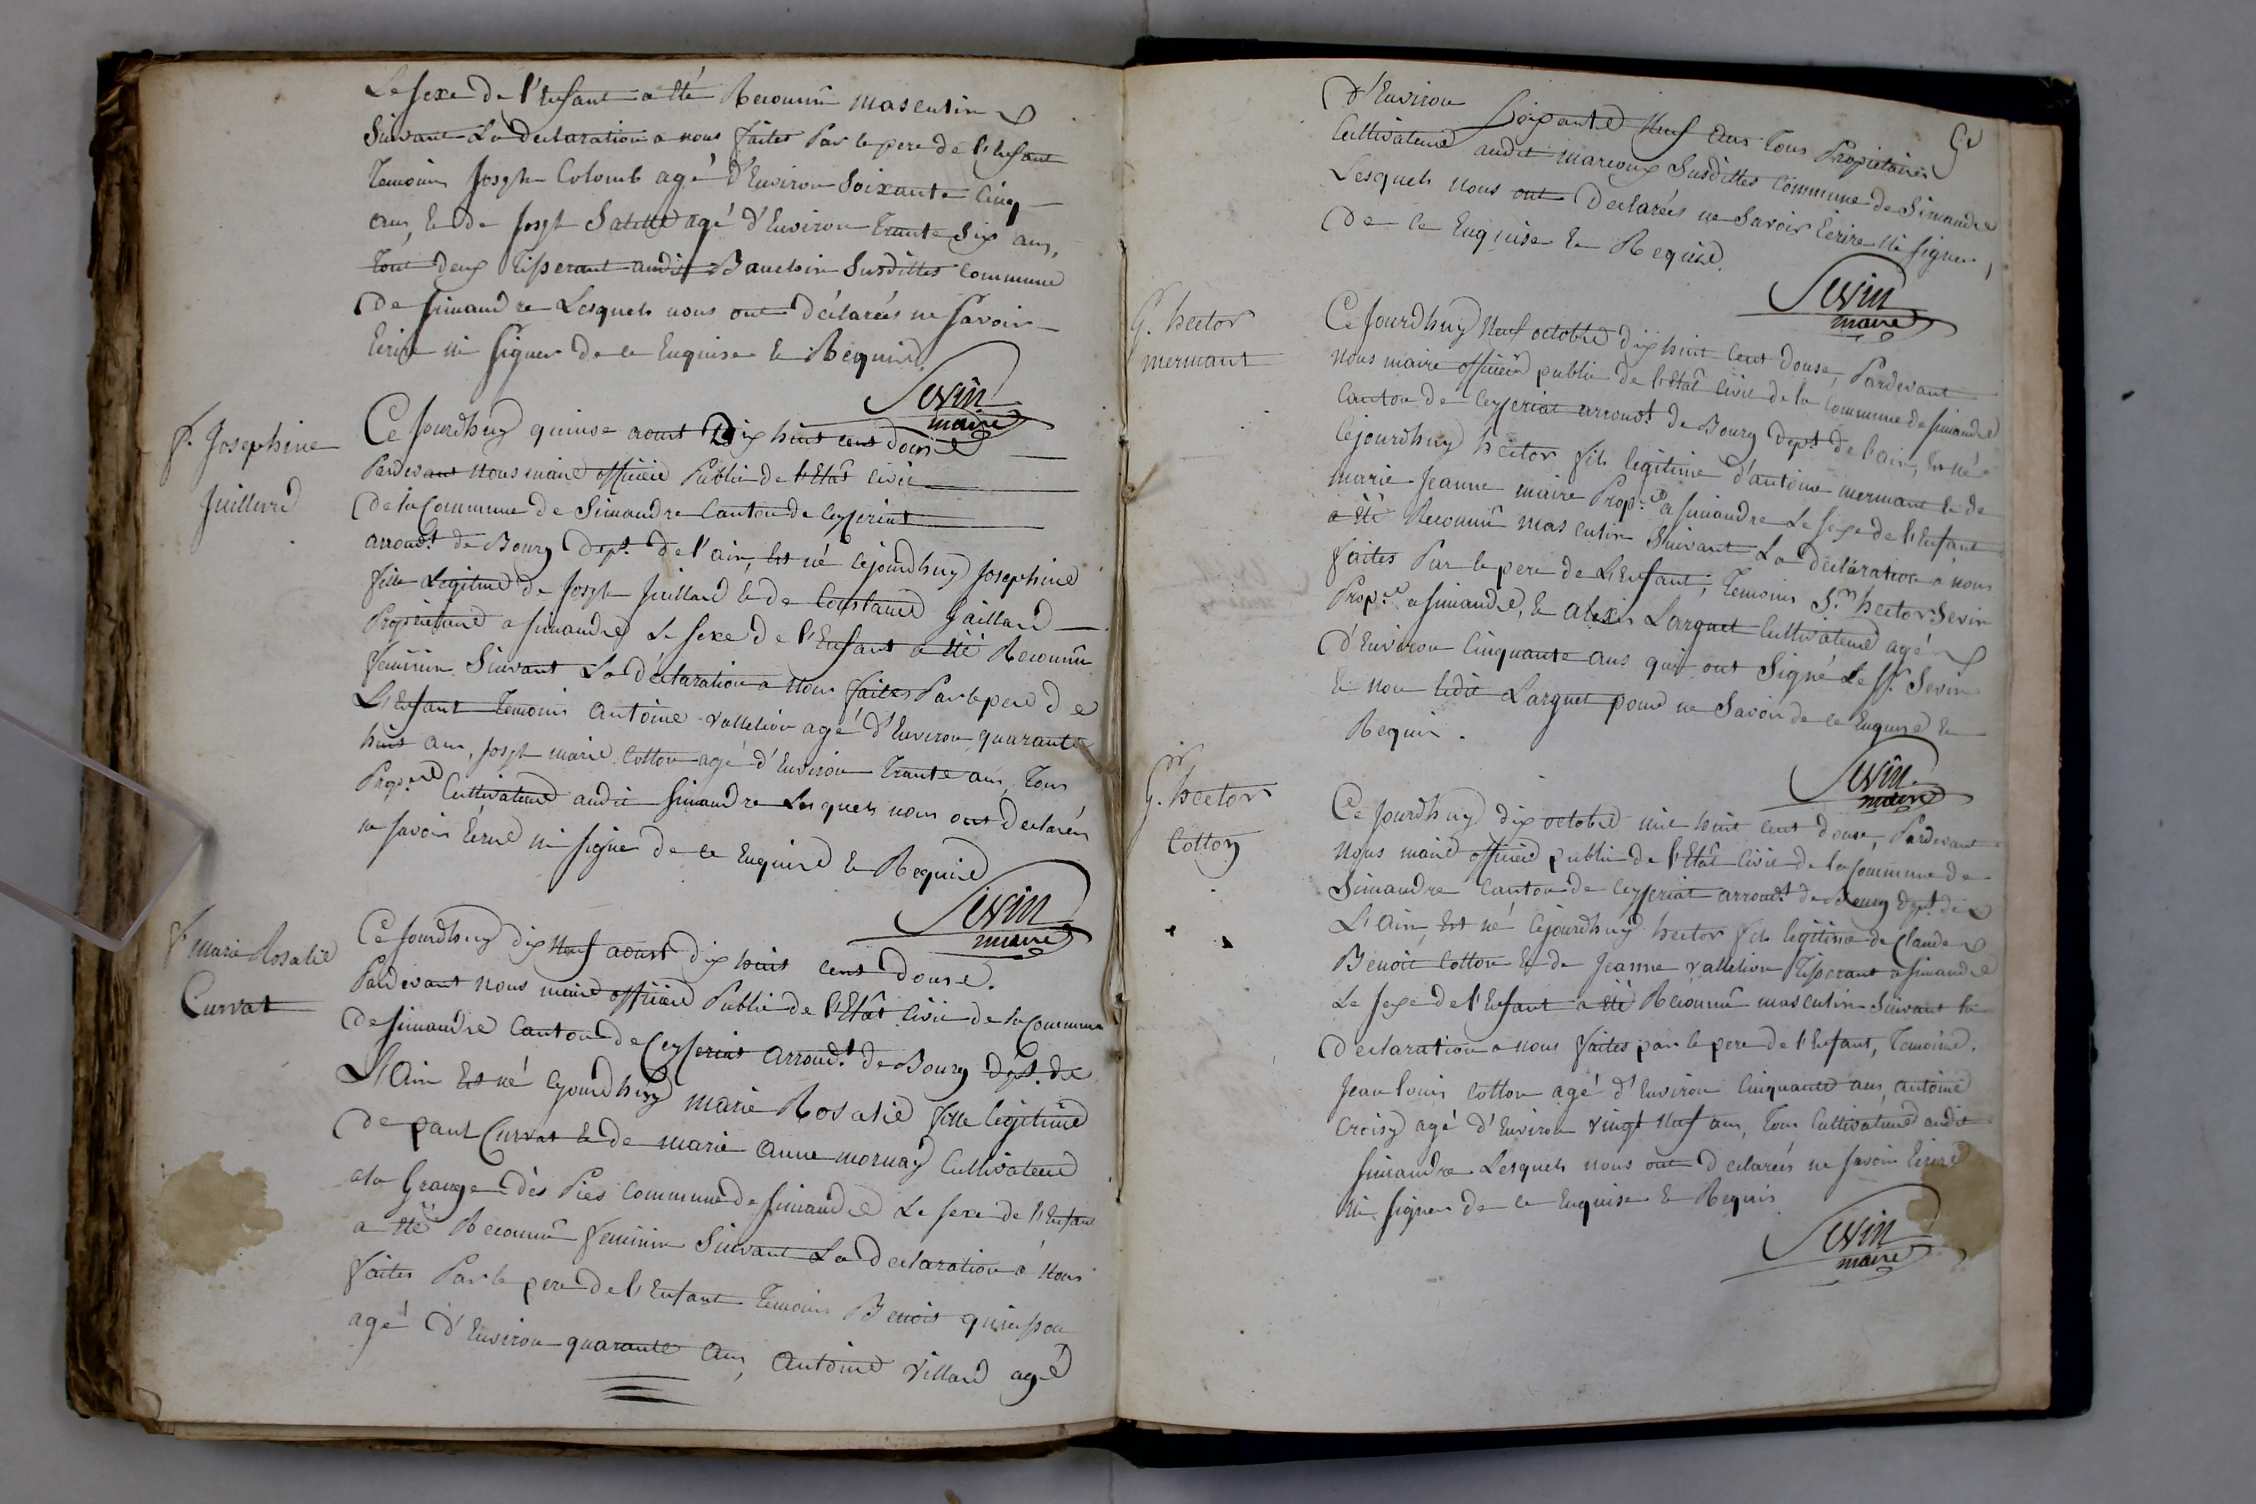 Le sexe de l'Enfant a été Reconnû masculin
Suivant La declaration a nous faites Par le pere de l'Enfant
Temoins Joseph Colomb agé d'Environ Soixante Cinq
ans, et de Josph agé d'Environ Trante Six ans,
Tout deux Tisserant audit Susdittes Commune
De Simandre Lesquels nous ont déclarées ne Savoir
Ecrire ni Signer de ce Enquise et Requise
Sevin
maire
f. Josephine
Juillard
Ce Jourdhuy quinse aoust Dix huit cent douse
Pardevant Nous maire officier Public de l'Etat Civil
de la Commune de Simandre Canton de Ceyseriat
arrondt. de Bourg Dept. de l'ain, Est né cejourdhuy Josephine
fille Legitime de Josph Juillard et de Constance Gaillard
Proprietaire a Simandre Le Sexe de l'Enfant a été Reconnû
feminin Suivant La déclaration a nous faites Par le pere de
L'Enfant Temoins Antoine Vallelion agé d'Environ quarante
huit ans, Josph marie Cotton agé d'Environ Trante ans, Tous
Propre. Cultivateur audit Simandre Lesquels nous ont declarées
ne Savoir Ecrire ni Signer de ce Enquise et Requise
Sevin
maire
f. marie Rosalie
Curvat
Ce Jourdhuy dix Neuf aoust dix huit cent douse.
Pardevant Nous maire officier Public de l'Etât Civil de la Commune
de Simandre Canton de Ceyseriat arrondt. de Bourg dept. de
L'Ain Est né cejourdhuy marie Rosalie fille legitime
de paul Curvat et de marie anne mornay Cultivateur
a la Grange dès Piès Commune de Simandre Le Sexe de l'Enfant
a été Reconnû feminin Suivant La declaration a Nous
faites Par le pere de l'Enfant Temoins Benoit quinsson
agé d'Environ quarante ans, Antoine Villard agé
d'Environ Soixante Neuf ans Tous Proprietaires
Cultivateur audit marcoux Susdittes Commune de Simandre
Lesquels nous ont Declarées ne Savoir Ecrire ni Signer,
De ce Enquise et Requise.
Sevin
maire
G. hector
mermant
Ce Jourdhuy Neuf octobre dix huit Cent Douse, Pardevant
Nous maire officier public de l'Etat Civil de la Commune de Simandre
Canton de Ceyseriat arrondt. de Bourg Dept. de l'ain, Est né
Cejourdhuy hector fils legitime d'antoine mermant et de
marie Jeanne maire Propre. a Simandre Le Sexe de l'Enfant
a été Reconnû masculin Suivant La declaration a nous
faites Par le pere de L'Enfant; Temoins Sr. hector Sevin
Propre. a Simandre, et alexis Larguet Cultivateur agé
d'Environ Cinquante ans qui ont Signé Le Sr. Sevin
et non ledit Larguet pour ne Savoir de ce Enquise et
Requis.
Sevin
maire
G. hector
Cotton
Ce Jourdhuy dix octobre mil huit cent douse, Pardevant
Nous maire officier public de l'Etât Civil de la Commune de
Simandre Canton de Ceyseriat arrondt. de Bourg dept. de
L'Ain, Est né Cejourdhuy hector fils legitime de Claude
Benoit Cotton et de Jeanne Vallelion Tisserant a Simandre
Le Sexe de l'Enfant a été Reconnû masculin Suivant la
Declaration a nous faites par le pere de l'Enfant, Temoins.
Jean louis Cotton agé d'Environ Cinquante ans, antoine
Croisy agé d'Environ Vingt Neuf ans, Tous Cultivateur audit
Simandre Lesquels nous ont Declarées ne Savoir Ecrire
Ni Signer de ce Enquise et Requis
Sevin
maire